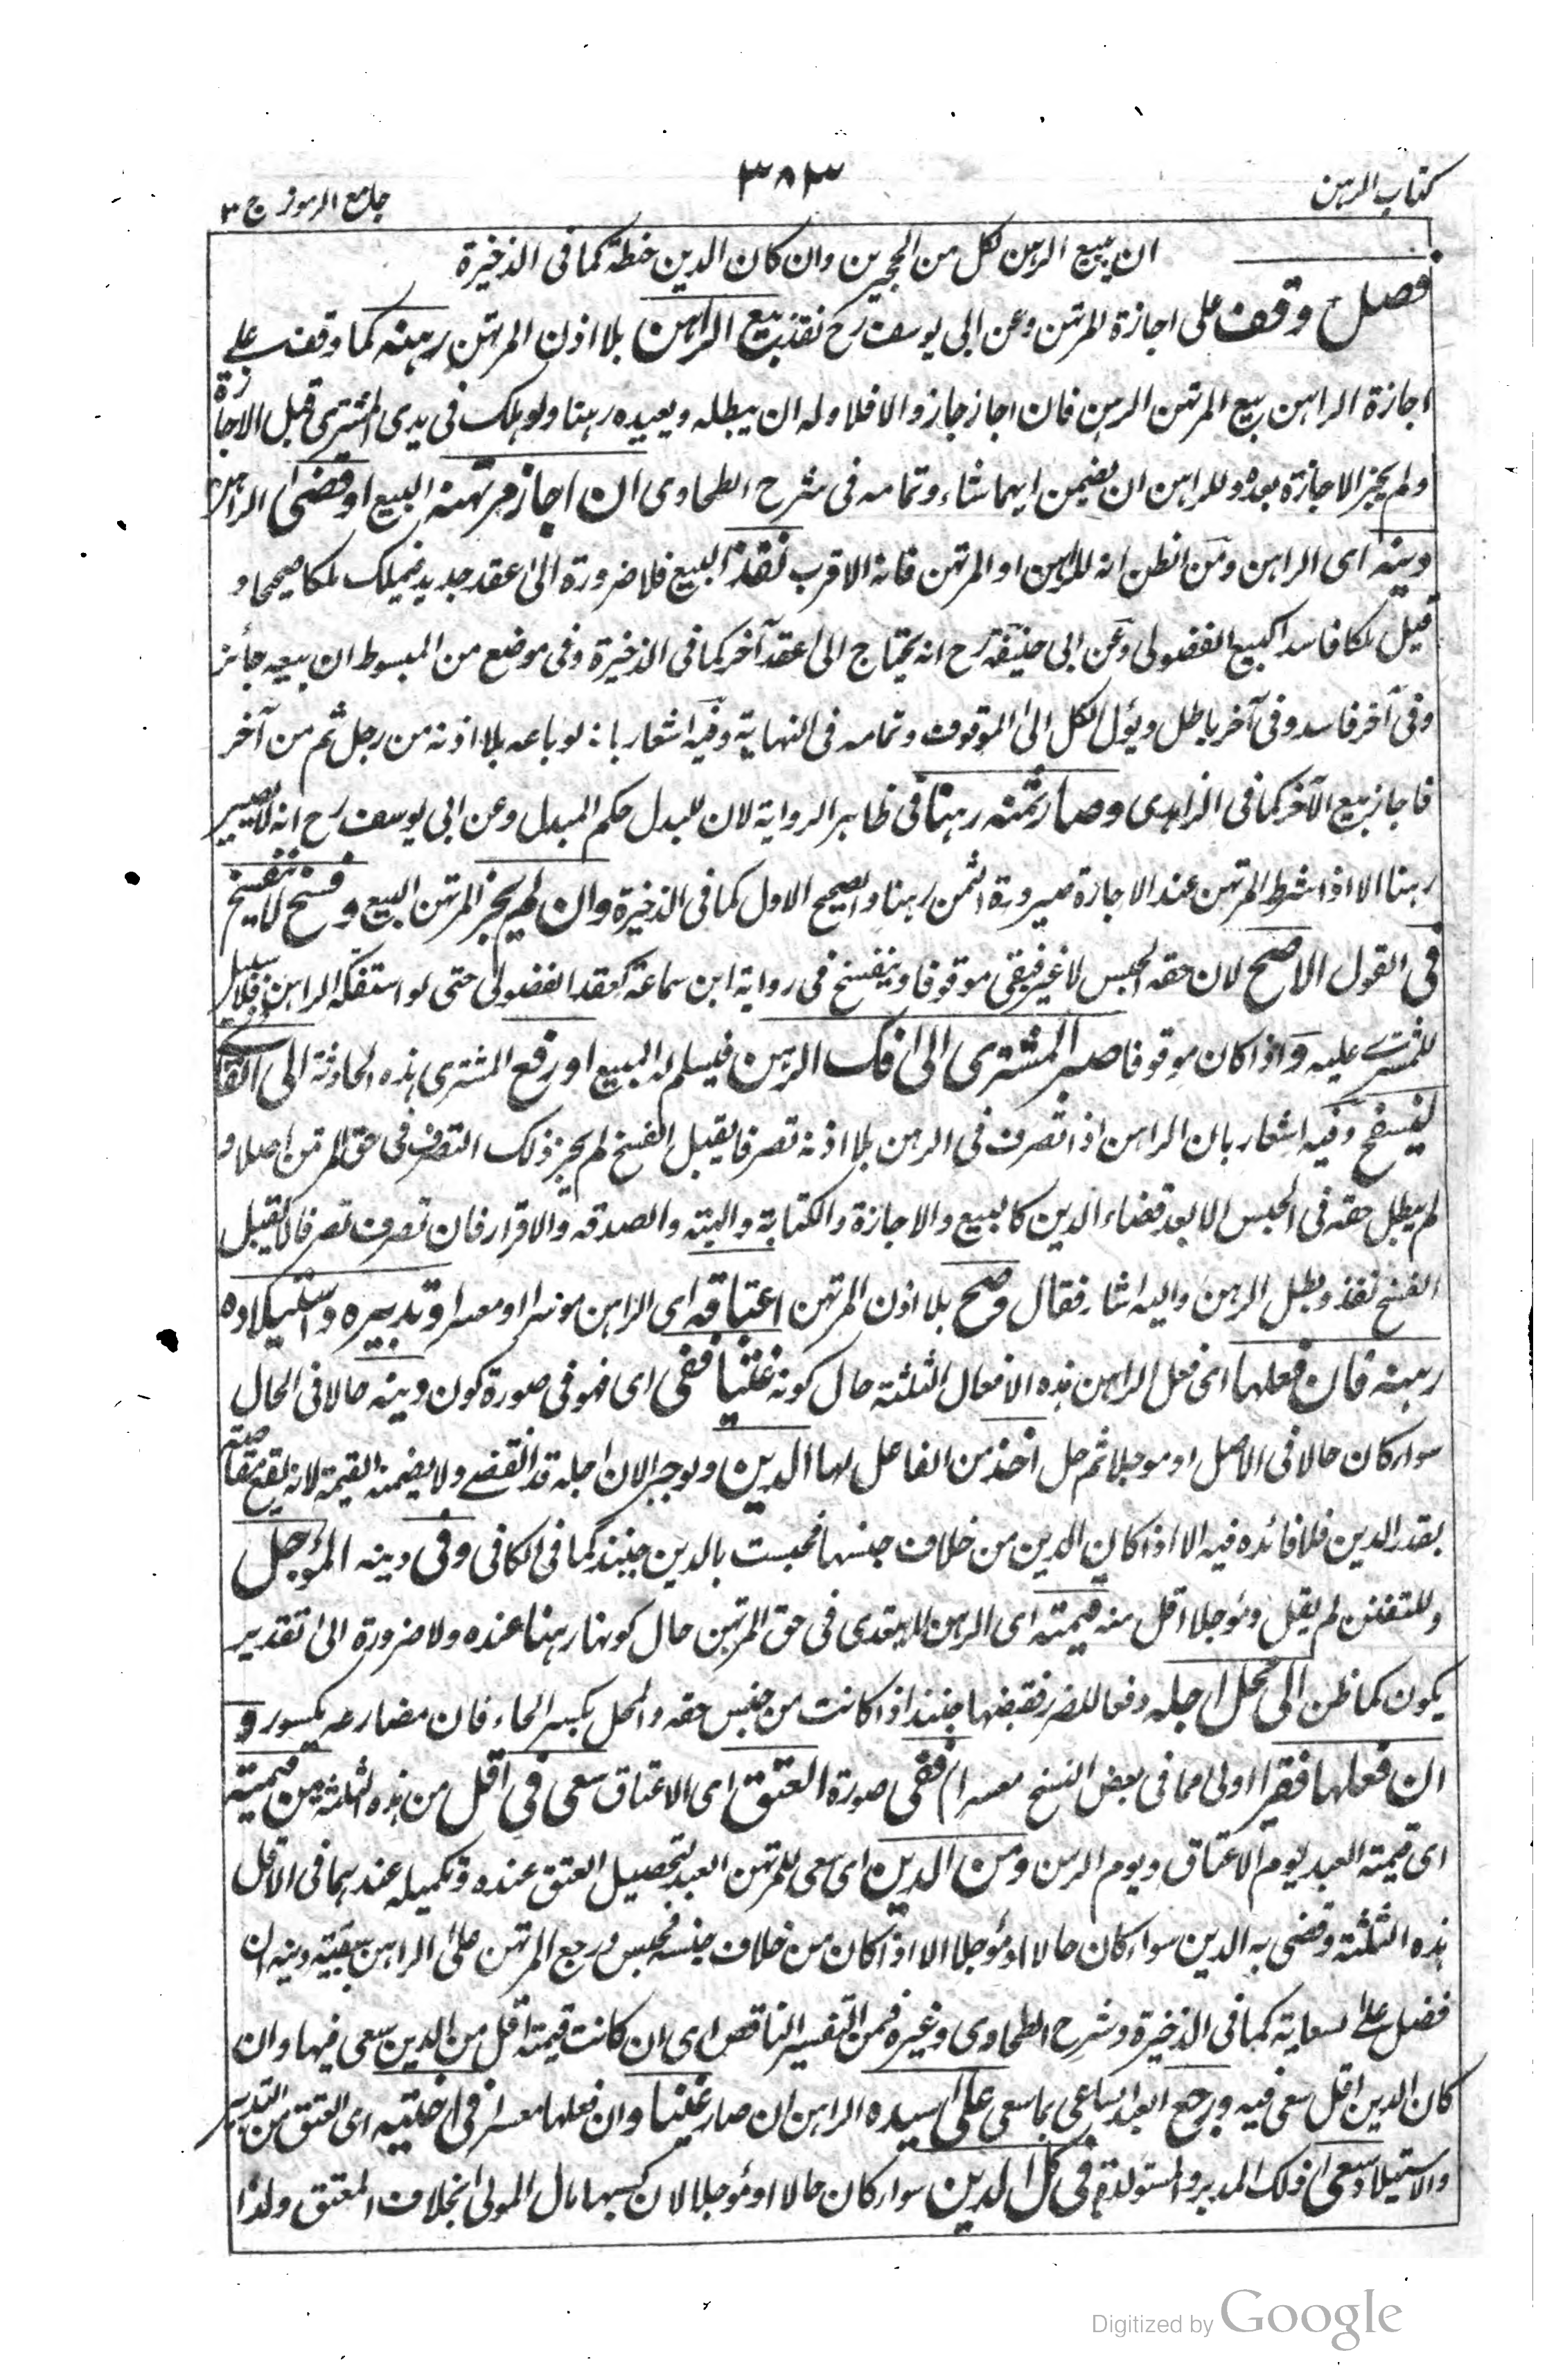 كتاب الرهن
٣٨٣
جامع الرموز ج ٣
ان يبيع الرهن لكل من المجيرين وان كان الدين حنطة كما فى الذخيرة
فصل وقف على اجازة المرتهن وعن ابى يوسف رح نفذ بيع الراهن بلا اذن المرتهن رهنه كما وقف على
اجازة الراهن بيع المرتهن الرهن فان اجاز جاز والا فلا وله ان يبطله ويعيده رهنا ولو هلك فى يدى المشترى قبل الاجازة
ولم يجز الاجازة بعده وللراهن ان يضمن ايهما شاء وتمامه فى شرح الطحاوى ان اجاز مرتهنه البيع او قضى الراهن
دينه اى الراهن ومن الظن انه للراهن او المرتهن فانه الاقرب نفذ البيع فلا ضرورة الى عقد جديد فيملك ملكا صحيحا و
قيل ملكا فاسدا كبيع الفضولى وعن ابى حنيفة رح انه يحتاج الى عقد آخر كما فى الذخيرة وفى موضع من المبسوط ان بيعه جائز
وفى آخر فاسد وفى آخر باطل ويؤل الكل الى الموقوف وتمامه فى النهاية وفيه اشعار بانه لو باعه بلا اذنه من رجل ثم من آخر
فاجاز بيع الآخر كما فى الزاهدى وصار ثمنه رهنا فى ظاهر الرواية لان للبدل حكم المبدل وعن ابى يوسف رح انه لا يصير
رهنا الا اذا شرط المرتهن عند الاجازة صيرورة الثمن رهنا والصحيح الاول كما فى الذخيرة وان لم يجز المرتهن البيع وفسخ لا ينفسخ
فى القول الاصح لان حقه الحبس لا غير فبقى موقوفا وينفسخ فى رواية ابن سماعة كعقد الفضولى حتى لو استفكه الراهن فلا سبيل
للمشترى عليه واذا كان موقوفا صبر المشترى الى فك الرهن فيسلم له المبيع او رفع المشترى هذه الحادثة الى القاضى
ليفسخ وفيه اشعار بان الراهن اذا تصرف فى الرهن بلا اذنه تصرفا يقبل الفسخ لم يجز ذلك التصرف فى حق المرتهن اصلا و
لم يبطل حقه فى الحبس الا بعد قضاء الدين كالبيع والاجازة والكتابة والهبة والصدقة والاقرار فان تصرف تصرفا لا يقبل
الفسخ نفذ وبطل الرهن واليه اشار فقال وصح بلا اذن المرتهن اعتاقه اى الراهن موسرا او معسرا وتدبيره واستيلاده
رهنه فان فعلها اى فعل الراهن هذه الافعال الثلثة حال كونه غنيا ففى اى فهو فى صورة كون دينه حالا فى الحال
سواء كان حالا فى الاصل او مؤجلا ثم حل اخذ من الفاعل لها الدين ويوجبر الان اجله قد انقضى ولا يضمنه القيمة لانه يقع مقاصة
بقدر الدين فلا فائده فيه الا اذا كان الدين من خلاف جنسها فحبست بالدين حينئذ كما فى الكافى وفى دينه المؤجل
وللتفنن لم يقل ومؤجلا اقل منه قيمته اى الرهن للتعدى فى حق المرتهن حال كونها رهنا عنده ولا ضرورة الى تقدير
يكون كما ظن الى محل اجله دفعا للضرر فقبضها حينئذ اذا كانت من جنس حقه والمحل بكسر الحاء فان مضارعه مكسور و
ان فعلها فقيرا اولى مما فى بعض النسخ معسرا ففى صورة العتق اى الاعتاق سعى فى اقل من هذه الثلثة من قيمته
اى قيمته العبد يوم الاعتاق ويوم الرهن ومن الدين اى سعى للمرتهن العبد لتحصيل العتق عنده وتكميله عندهما فى الاقل
هذه الثلثة وقضى به الدين سواء كان حالا او مؤجلا الا اذا كان من خلاف جنسه فحبس ورجع المرتهن على الراهن ببقية دينه ان
فضل على السعاية كما فى الذخيرة وشرح الطحاوى وغيره فمن التفسير الناقص اى ان كانت قيمته اقل من الدين سعى فيها وان
كان الدين اقل سعى فيه ورجع العبد الساعى بما سعى على سيده الراهن ان صار غنيا وان فعلها معسرا فى اختيه اى العتق من التدبير
والاستيلاد سعى ذلك المدبر والمستولدة فى كل الدين سواء كان حالا او مؤجلا لان كسبهما مال المولى بخلاف المعتق ولذا
Digitized by Google